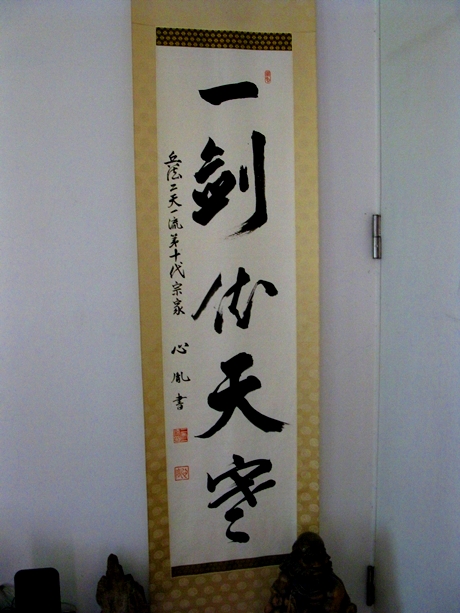 一剣倚天寒
兵法二天一流第十代宗家 心胤書